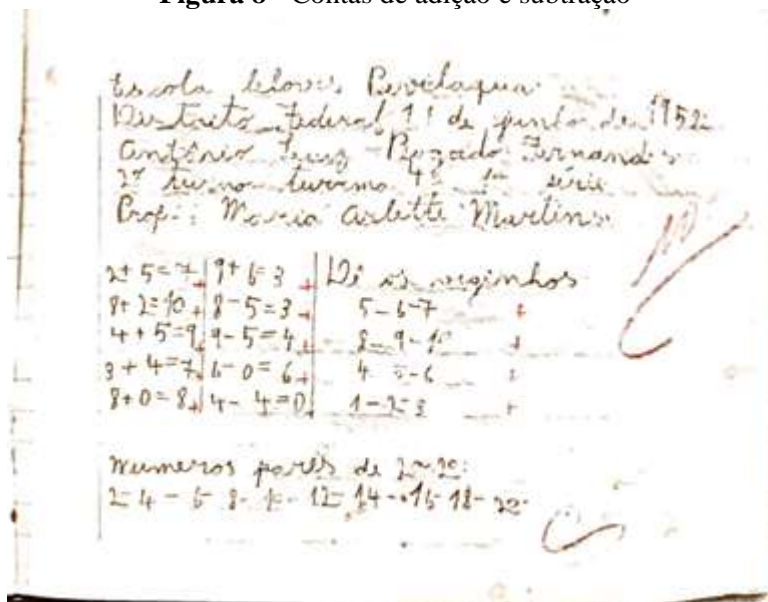 Figura 8 - Contas de adição e subtração
Escola Clovis Bevilaqua
Distrito Federal 11 de junho de 1952
Antônio Luiz Fernandes
2º turno turma 4 1ª série
Prof.: Maria Arlette Martins
10
2+5=7 9+6=3 Dê os viginhos
8+2=10 8-5=3 5-6-7
4+5=9 9-5=4 8-9-10
3+4=7 6-0=6 4-5-6
8+0=8 4-4=0 1-2-3
Numeros pares de 2 a 20:
2-4-6-8-10-12-14-16-18-20